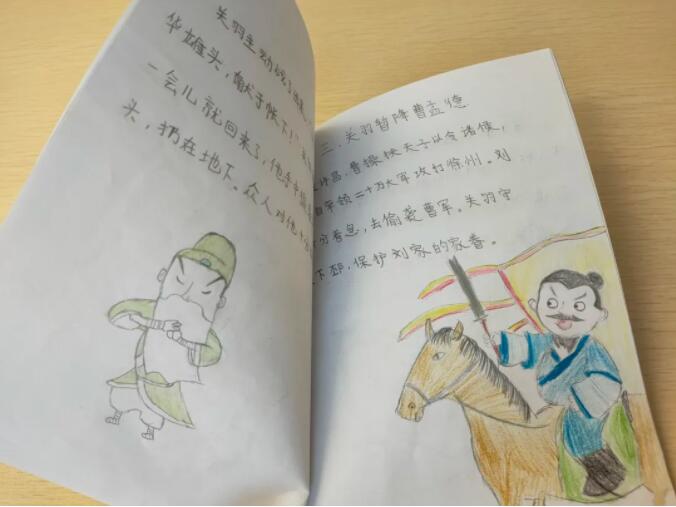 关羽主动战
华雄头，献于帐下！”
一会儿就回来了，他手中提
头，扔在地下。众人对他十分
三、关羽暂降曹孟德
许昌，曹操挟天子以令诸侯，
自率领二十万大军攻打徐州。刘
分着急，去偷袭曹军。关羽守
下邳，保护刘家的家眷。